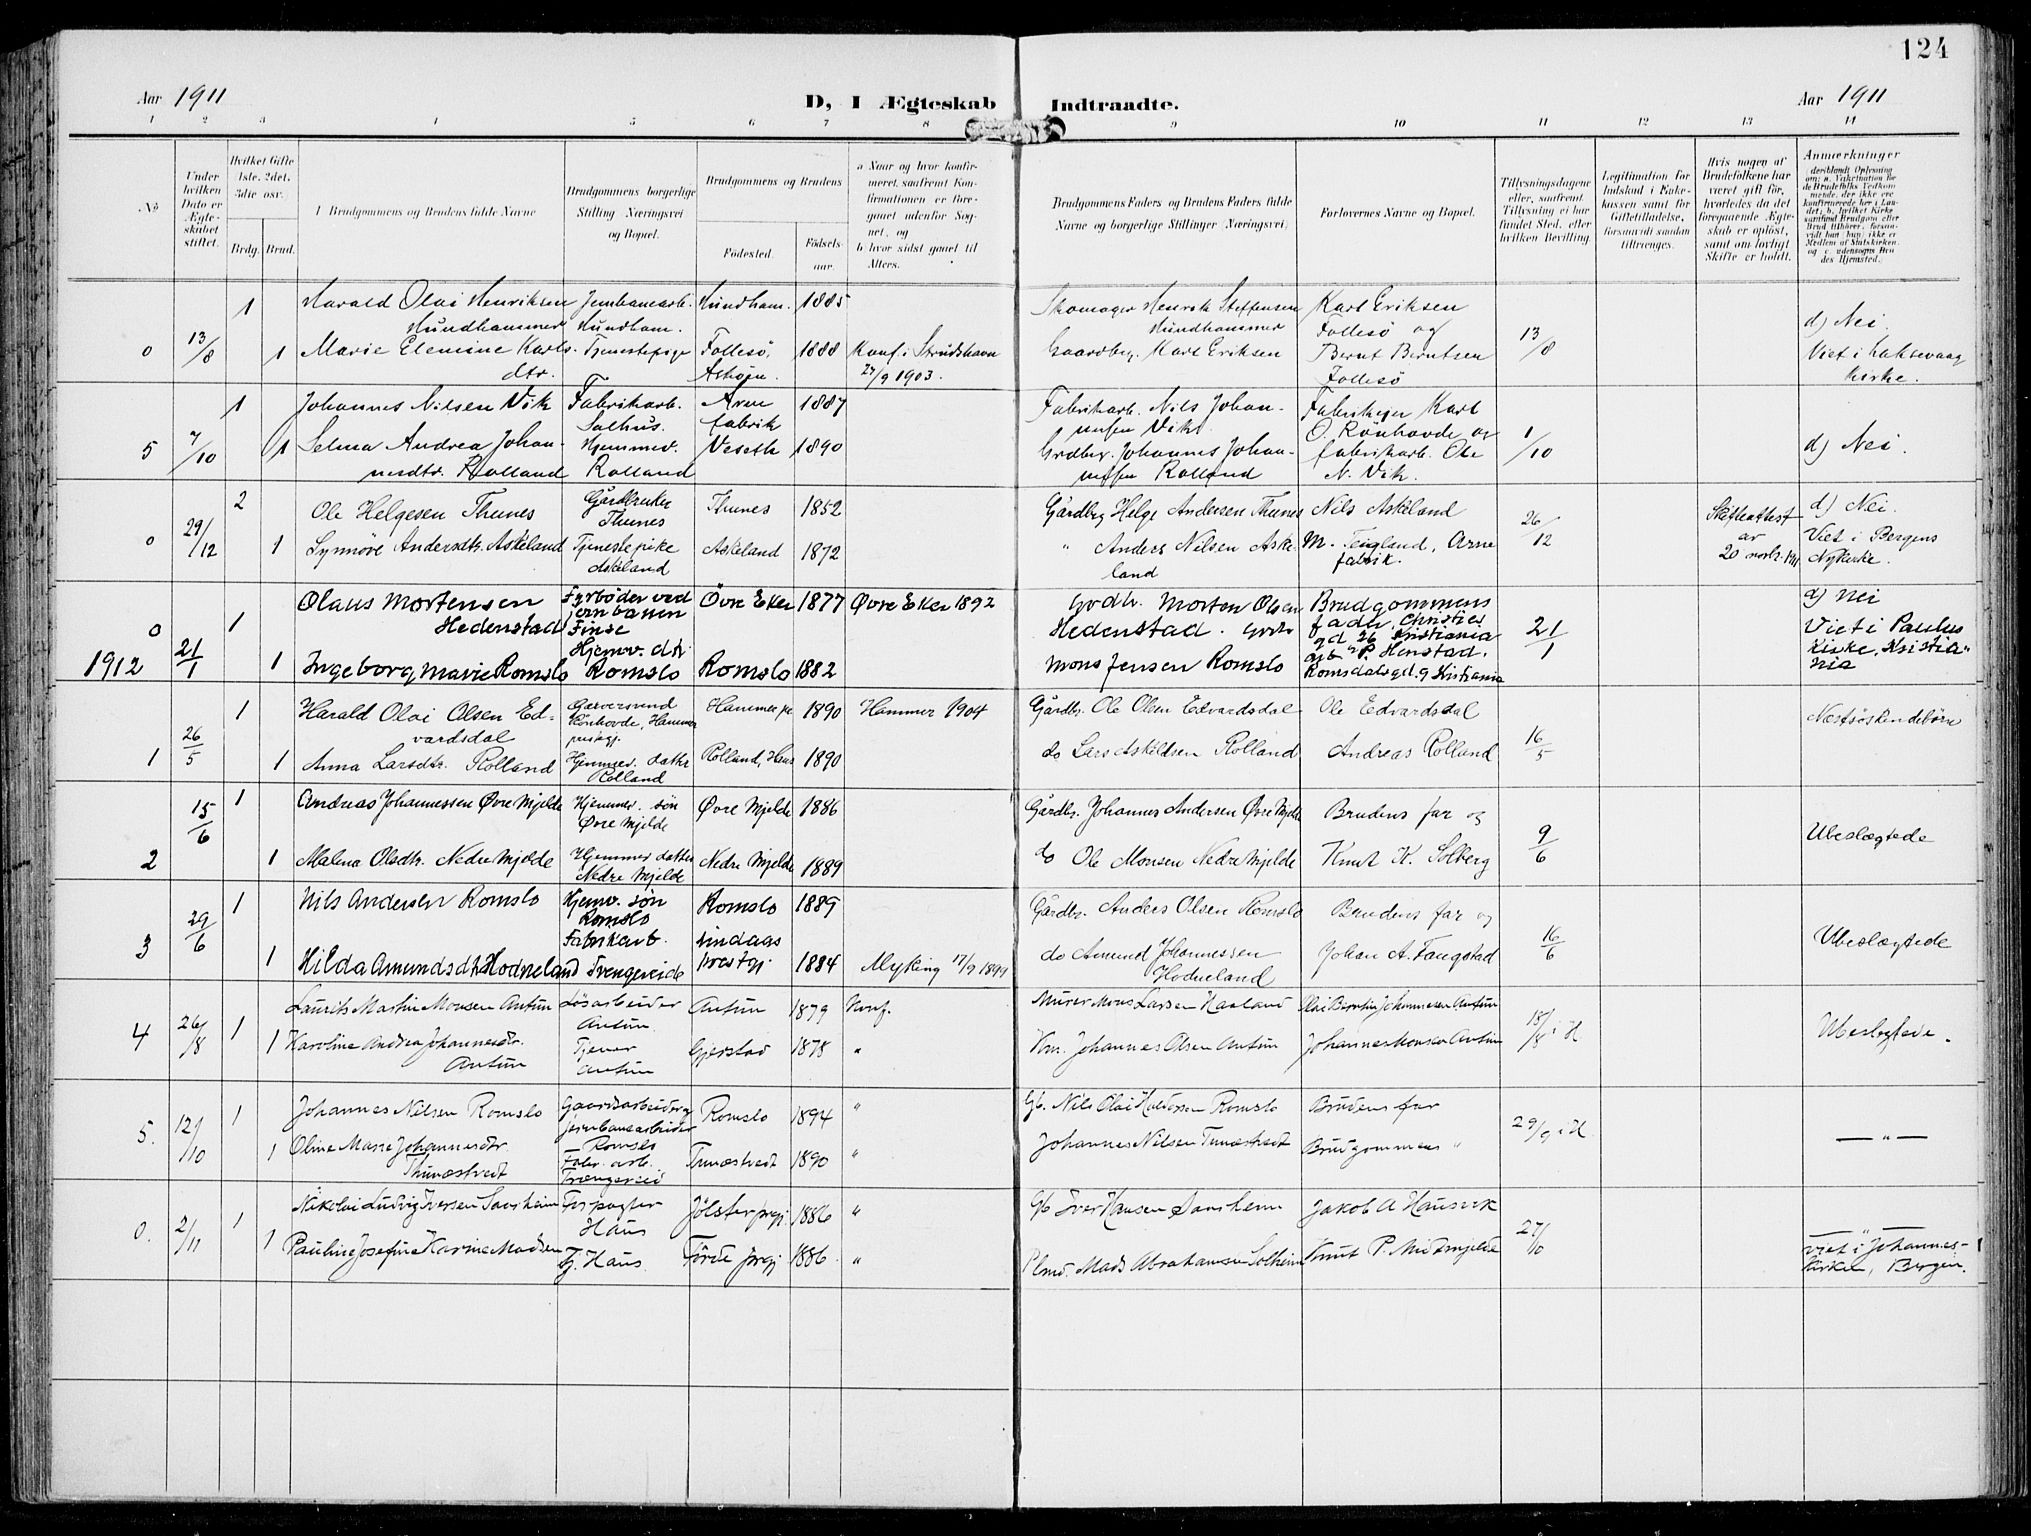 124
Aar 1911
D, I Ægteskab Indtraadte.
Aar 1911
1 2 3 4 5 6 7 8 9 10 11 12 13 14
No
Under hvilken Dato er Ægteskabet stiftet.
Hvilket Gifte 1ste, 2det, 3die osv.
Brdg. Brud.
1 Brudgommens og Brudens fulde Navne
Brudgommens borgerlige Stilling Næringsvei og Bopæl.
Brudgommens og Brudens
Fødested. Fødselsaar.
a Naar og hvor konfirmeret, saafremt Konfirmationen er foregaaet udenfor Sognet, og
b hvor sidst gaaet til Alters.
Brudgommens Faders og Brudens Faders fulde Navne og borgerlige Stillinger Næringsvei
Forlovernes Navne og Bopæl.
Tillysningsdagene eller, saafremt Tillysning ei har fundet Sted, efter hvilken Bevilling.
Legitimation for Indskud i Enkekassen samt for Giftetilladelse, forsaavidt saadan tiltrænges.
Hvis nogen af Brudefolkene har været gift før, hvorledes da det foregaaende Ægteskab er opløst, samt om lovligt Skifte er holdt.
Anmærkninger
0 13/8 1 Harald Olai Henriksen Hundhammer Jernbanearb. Hundham. Hundham. 1885 Skomager Henrik Steffensen Hundhammer Karl Eriksen Follesö og
1 Marie Elemine Karlsdtr. Tjenestepige Follesö, Askøen. 1888 Konf. i Strudshavn 27/9 1903. Gaardbr. Karl Eriksen Bernt Berntsen Follesö 13/8 d) Nei. Viet i Laksevaag Kirke.
5 7/10 1 Johannes Nilsen Vik Fabrikarb. Salhus. Arne fabrik 1887 Fabrikarb. Nils Johannesen Vik. Fabrikeier Karl O. Rönhovde og
1 Selma Andrea Johannesdtr. Rolland Hjemmev. Rolland Veseth 1890 Grdbr. Johannes Johannessen Rolland fabrikarb. Ole N. Vik. 1/10 d) Nei.
0 29/12 2 Ole Helgesen Thunes Gårdbruker Thunes Thunes 1852 Gårdbr Helge Andersen Thunes Nils Askeland
1 Synnöve Andersdtr. Askeland Tjenestepike Askeland Askeland 1872 " Anders Nilsen Askeland M. Teigland, Arne fabrik. 26/12 Skifteattest av 20 novbr. 1911 d) Nei. Viet i Bergens Nykirke.
0 1912 21/1 1 Olaus Mortensen Hedenstad Fyrböder ved jernbanen Finse Övre Eker 1877 Øvre Eker 1892 Grdbr. Morten Olsen Hedenstad. Brudgommens fadr, Christies gd 26 Kristiania
1 Ingeborg Marie Romslo Hjemv. dtr. Romslo Romslo 1882 Grdbr Mons Jensen Romslo arb P. Henstad. Romsdalsgd. 9 Kristiania 21/1 d) Nei Viet i Paulus Kirke, Kristiania
1 26/5 1 Harald Olai Olsen Edvardsdal Garversvend Rönhovde, Hammer prestgj. Hammer pr 1890 Hammer 1904 Gårdbr. Ole Olsen Edvardsdal Ole Edvardsdal
1 Anna Larsdtr. Rolland Hjemmev. datter Rolland Rolland, Haus 1890 do Lars Askildsen Rolland Andreas Rolland 16/5 Næstsöskendebörn
2 15/6 1 Andreas Johannessen Øvre Mjelde Hjemmev. søn Øvre Mjelde Øvre Mjelde 1886 Gårdbr. Johannes Andersen Øvre Mjelde Brudens far og
1 Malena Olsdtr. Nedre Mjelde Hjemmev datter Nedre Mjelde Nedre Mjelde 1889 do Ole Monsen Nedre Mjelde Knut K. Solberg 9/6 Ubeslægtede
3 29/6 1 Nils Andersen Romslo Hjemv. søn Romslo Romslo 1889 Gårdbr. Anders Olsen Romslo Brudens far og
1 Hilda Amundsdtr Hodneland Fabrikarb. Trengereide Lindaas prestgj. 1884 Myking 17/9 1899 do Amund Johannessen Hodneland Johan A. Fangstad 16/6 Ubeslægtede
4 26/8 1 Laurits Martin Monsen Antun Løsarbeider Antun Antun 1879 Konf. Murer Mons Larsen Haaland Olai Berntin Johannesen Antun
1 Karoline Andrea Johannesdtr. Antun Tjener Antun Gjerstad 1878 " Km. Johannes Olsen Antun Johannes Monsen Antun 18/8 i H Ubeslegtede.
5. 12/10 1 Johannes Nilsen Romslo Gaardsarbeider og Jernbanearbeider Romslo Romslo 1894 " Gb. Nils Olai Haldorsen Romslo Brudens far
1 Oline Marie Johannesdtr. Thunæstvedt Fabr. arb. Trængereid Tunæstvedt 1890 " Johannes Nilsen Tunæstvedt Brudgommens " 29/9 i H. — " —
0. 2/11 1 Nikolai Ludvig Iversen Saarheim Forpagter Haus Jölster prgj 1886 " Gb Iver Hansen Saarheim Jakob A Hausvik
1 Pauline Josefine Karine Madsen Tj. Haus Förde prgj 1886 " Plmd. Mads Abrahamsen Solheim Knut P. Midtmjelde 27/10 — " — viet i Johannes-kirken, Bergen.